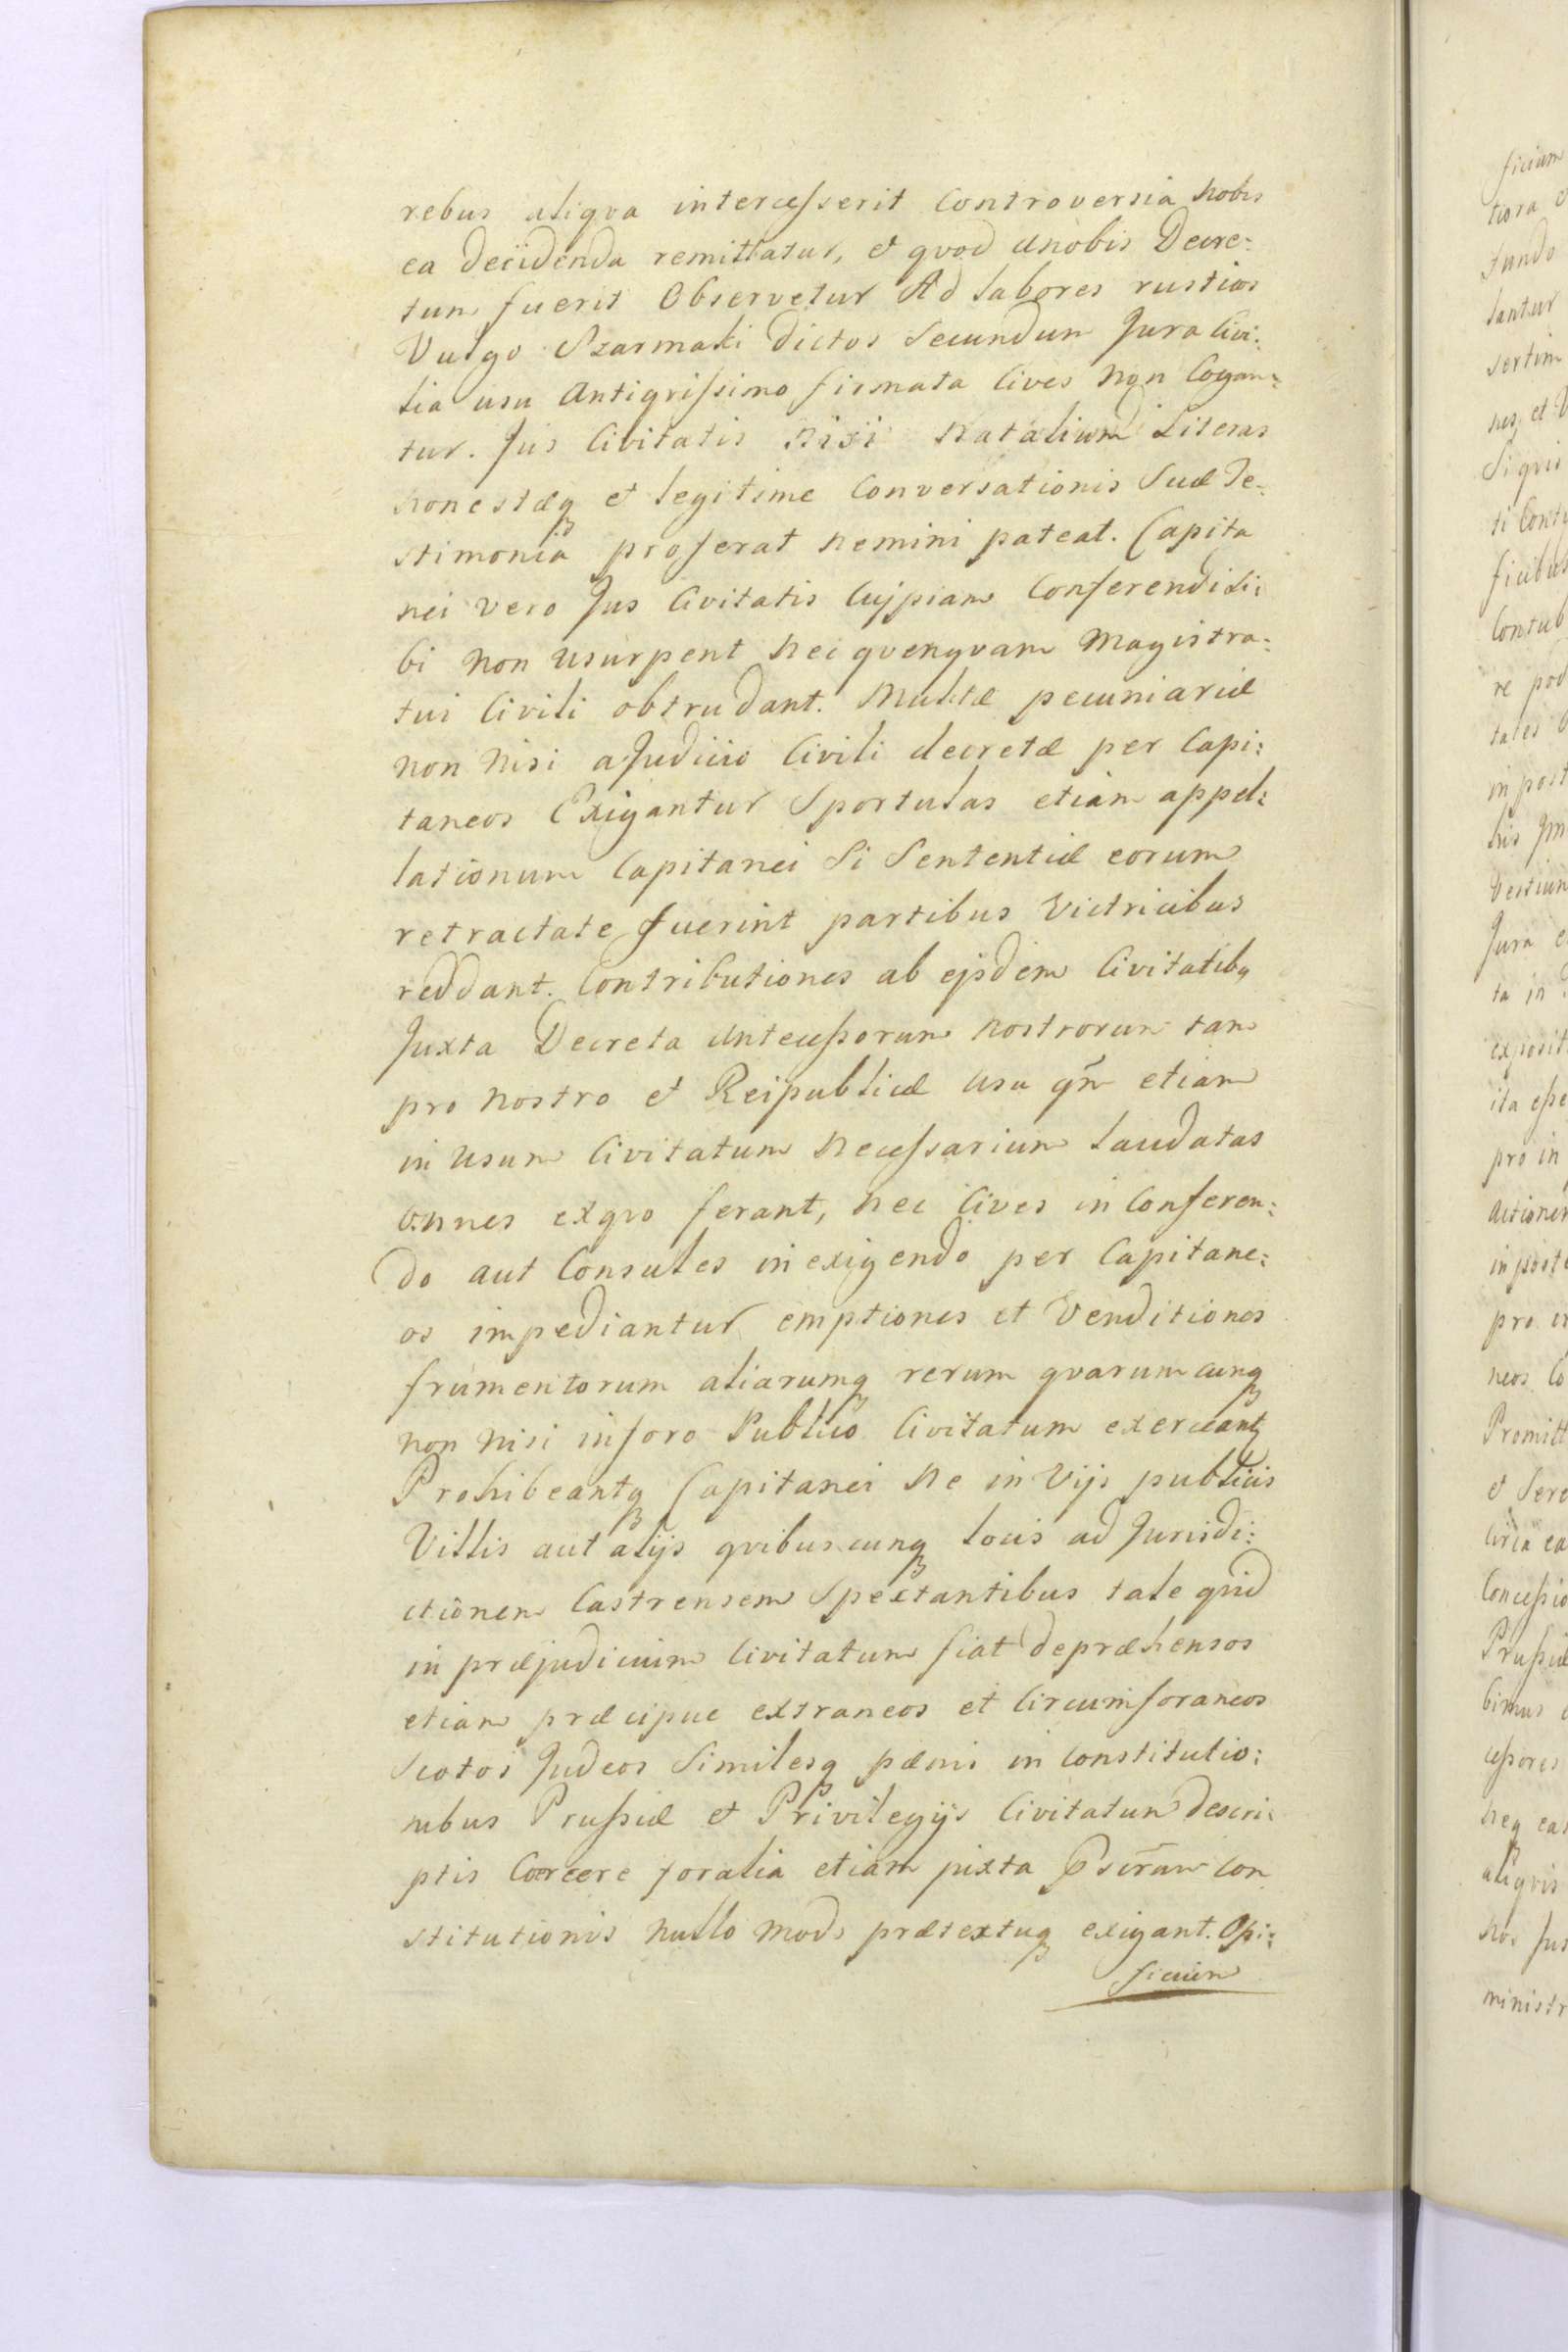 rebus aliqva intercesserit Controversia Nobis
ea decidenda remittatur, et qvod a nobis Decre:
tum fuerit Observetur Ad labores rusticos
Vulgo Szarmaki dictos Secundum Jura Civi:
lia usu Antiqvissimo firmata Cives Non Cogan:
tur. Jus Civitatis Nisi Natalium Literas
honestæq et legitime Conversationis Suæ Te:
stimonia proferat Nemini pateat. Capita
nei vero Jus Civitatis Cujpiam Conferendi Si:
bi Non usurpent Nec qvenqvam Magistra:
tui Civili obtrudant. Multæ pecuniariæ
non Nisi a Judicio Civili decretæ per Capi:
taneos Exigantur Sportulas etiam appel:
lationum Capitanei Si Sententiæ eorum
retractate fuerint partibus Victricibus
reddant. Contributiones ab ejsdem Civitatibq
Juxta Decreta Antecessorum Nostrorum tam
pro Nostro et Reipublicæ usu qm̃ etiam
in usum Civitatum Necessarium laudatas
omnes exqvo ferant, Nec Cives in Conferen:
do aut Consules in exigendo per Capitane:
os impediantur emptiones et Venditiones
frumentorum aliarumq rerum qvarumcunq
non Nisi in foro Publico Civitatum exerceantq
Prohibeantq Capitanei Ne in Vijs publicis
Villis aut alijs qvibuscunq locis ad Jurisdi:
ctionem Castrensem Spectantibus tale qvid
in præjudicium Civitatum fiat depræhensos
etiam præcipue extraneos et Circumforaneos
Scotos Judeos Similesq pænis in Constitutio:
nibus Prussiæ et Privilegijs Civitatum descri:
ptis Coercere foralia etiam juxta con
stitutionis Nullo Modo prætextuq exigant. Opi:
ficium
ficium
tiora
tundo
lantur
sertim
nes, et
Siqvis
ficibus
re
tales
in post
his
Jura
ta in
exposit
ita esse
pro in
actiones
in poste
pro
neos Co
Promitt
et Sere
Circa ea
Concessio
Prussiæ
bimus
cessores
neq ea
aliqvis
Nos Jus
ministr